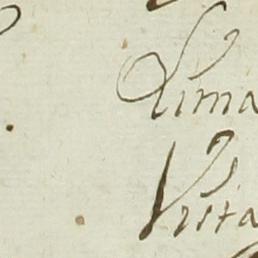 Lima
Vista